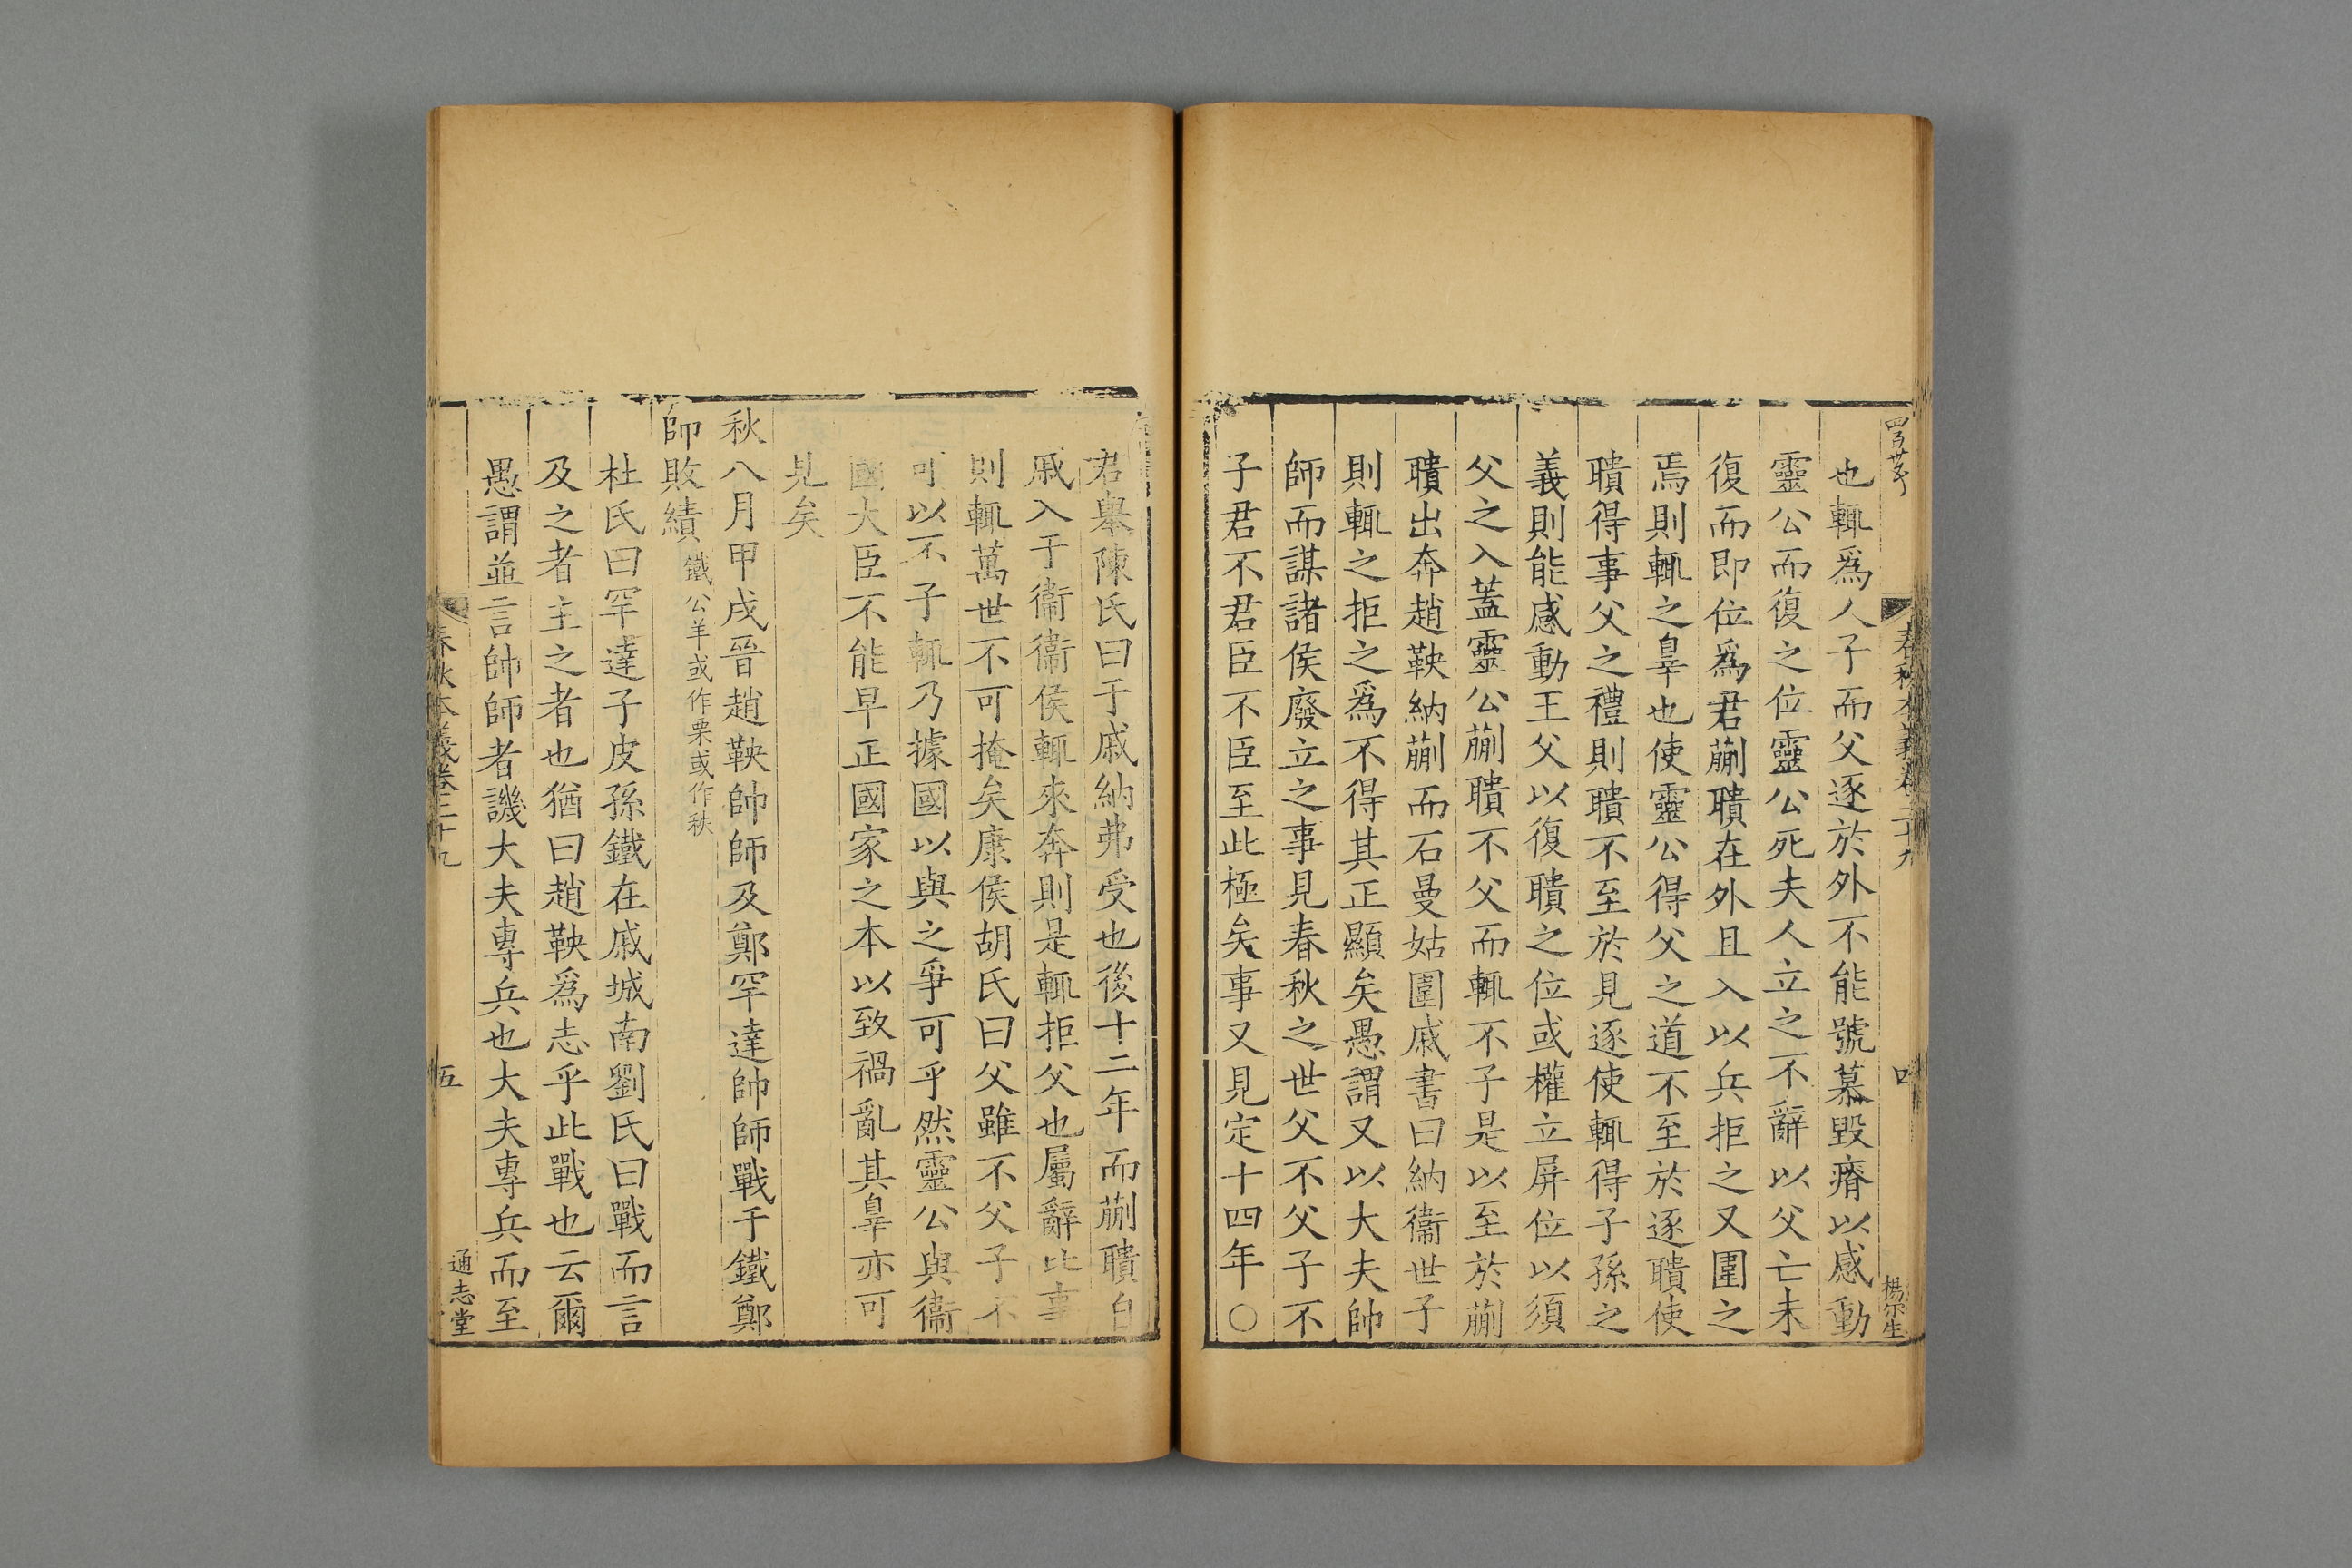 春秋本義卷二十九
楊宗生
也輒爲人子而父逐於外不能號慕毀瘠以感動
靈公而復之位靈公死夫人立之不辭以父亡未
復而即位爲君蒯聵在外且入以兵拒之又圍之
焉則輒之辠也使靈公得父之道不至於逐聵使
聵得事父之禮則聵不至於見逐使輒得子孫之
義則能感動王父以復聵之位或權立屏位以須
父之入蓋靈公蒯聵不父而輒不子是以至於蒯
聵出奔趙鞅納蒯而石曼姑圍戚書曰納衞世子
則輒之拒之爲不得其正顯矣愚謂又以大夫帥
師而謀諸侯廢立之事見春秋之世父不父子不
子君不君臣不臣至此極矣事又見定十四年○
君舉陳氏曰于戚納弗受也後十二年而蒯聵自
戚入于衞衞侯輒來奔則是輒拒父也屬辭比事
則輒萬世不可掩矣康侯胡氏曰父雖不父子不
可以不子輒乃據國以與之爭可乎然靈公與衞
國大臣不能早正國家之本以致禍亂其辠亦可
見矣
秋八月甲戌晉趙鞅帥師及鄭罕達帥師戰于鐵鄭
師敗績鐵公羊或作栗或作秩
杜氏曰罕達子皮孫鐵在戚城南劉氏曰戰而言
及之者主之者也猶曰趙鞅爲志乎此戰也云爾
愚謂並言帥師者譏大夫專兵也大夫專兵而至
春秋本義卷二十九
五
通志堂